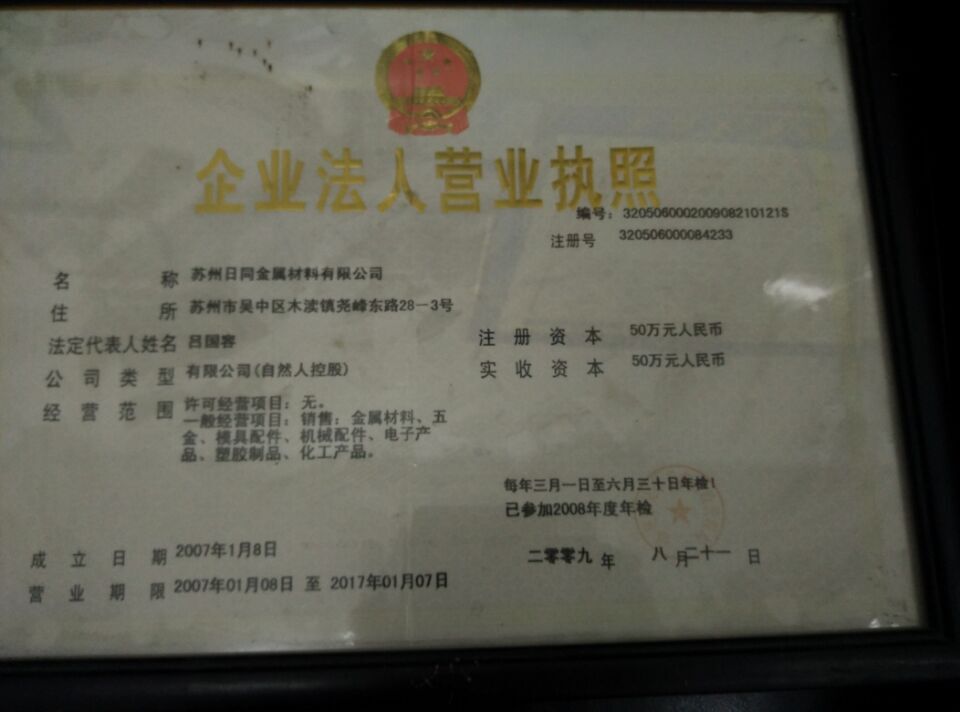 企业法人营业执照
编号：320506000200908210121S
注册号 320506000084233
名称 苏州日同金属材料有限公司
住所 苏州市吴中区木渎镇尧峰东路28－3号
法定代表人姓名 吕国容
注册资本 50万元人民币
公司类型 有限公司(自然人控股)
实收资本 50万元人民币
经营范围 许可经营项目：无。
一般经营项目：销售：金属材料、五
金、模具配件、机械配件、电子产
品、塑胶制品、化工产品。
每年三月一日至六月三十日年检！
已参加2008年度年检
二零零九年 八月二十一日
成立日期 2007年1月8日
营业期限 2007年01月08日 至 2017年01月07日